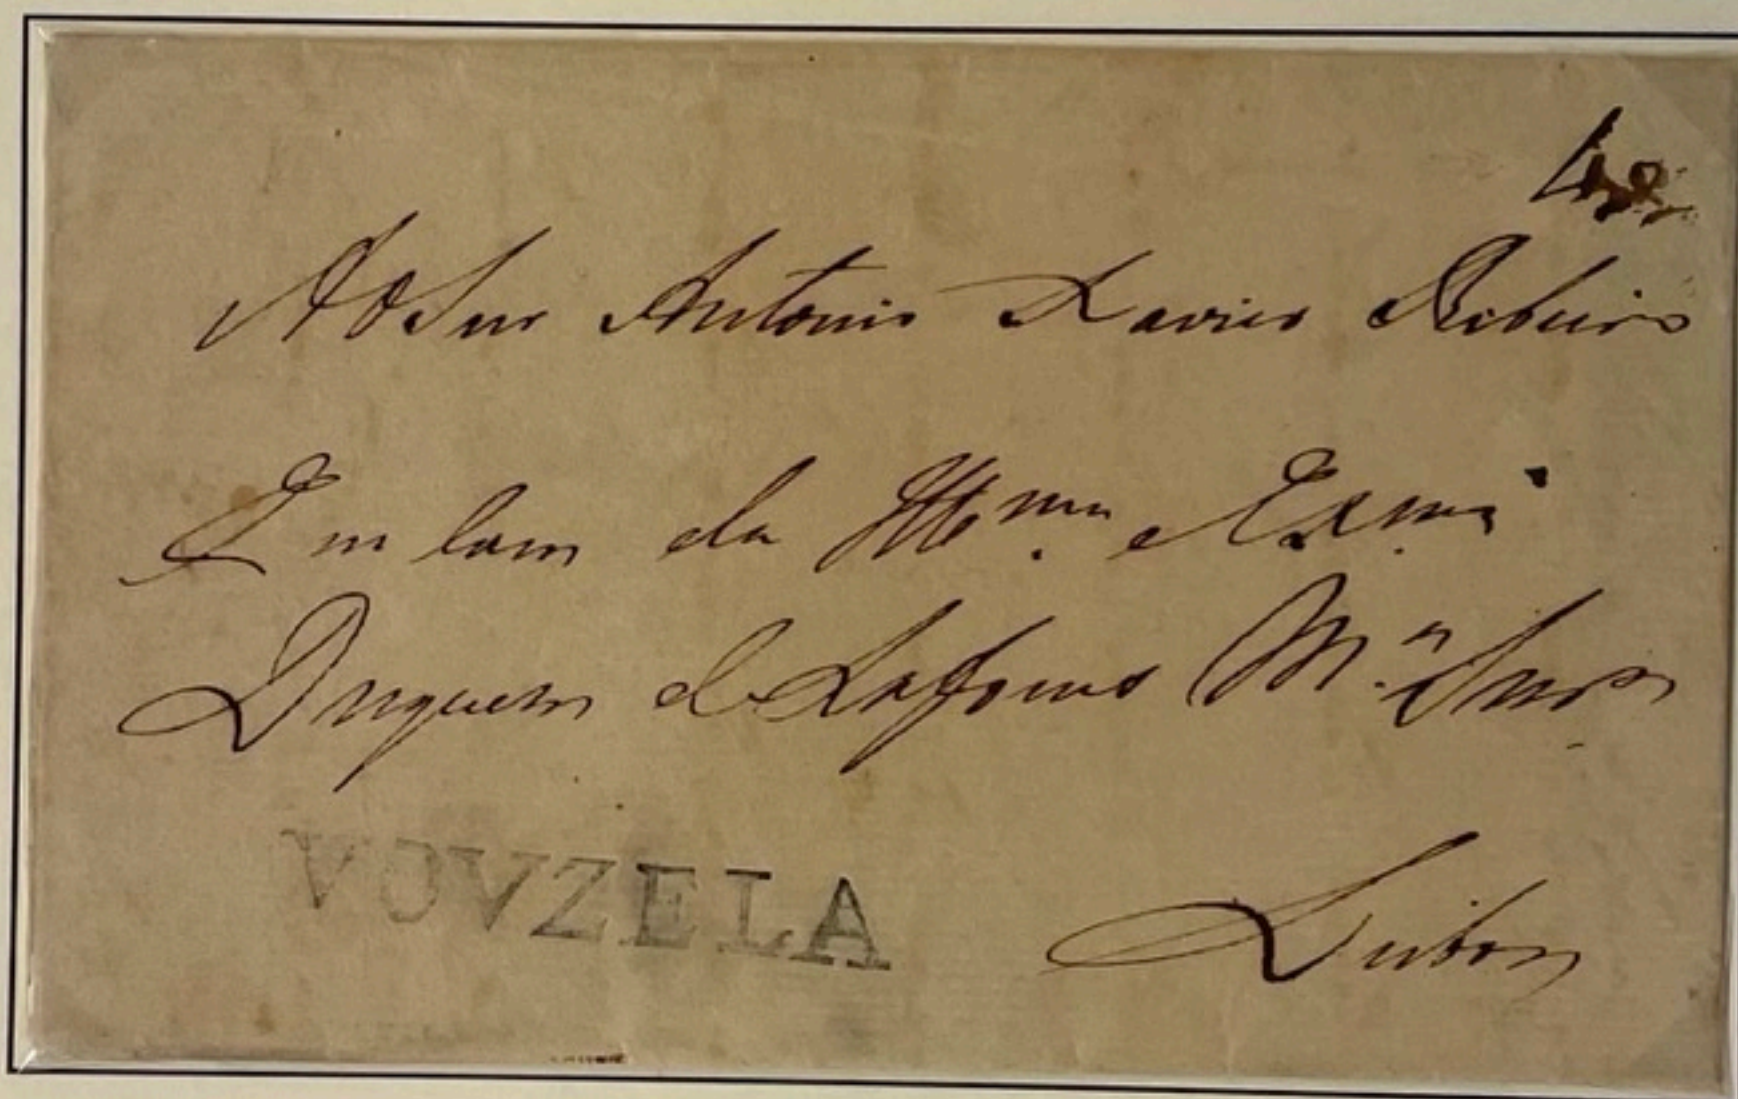 Ao Snr Antonio Xavier Ribeiro
Em Caza da Illma e Exma
Duqueza de Lafoens Ma Snra
VOVZELA
Lisboa